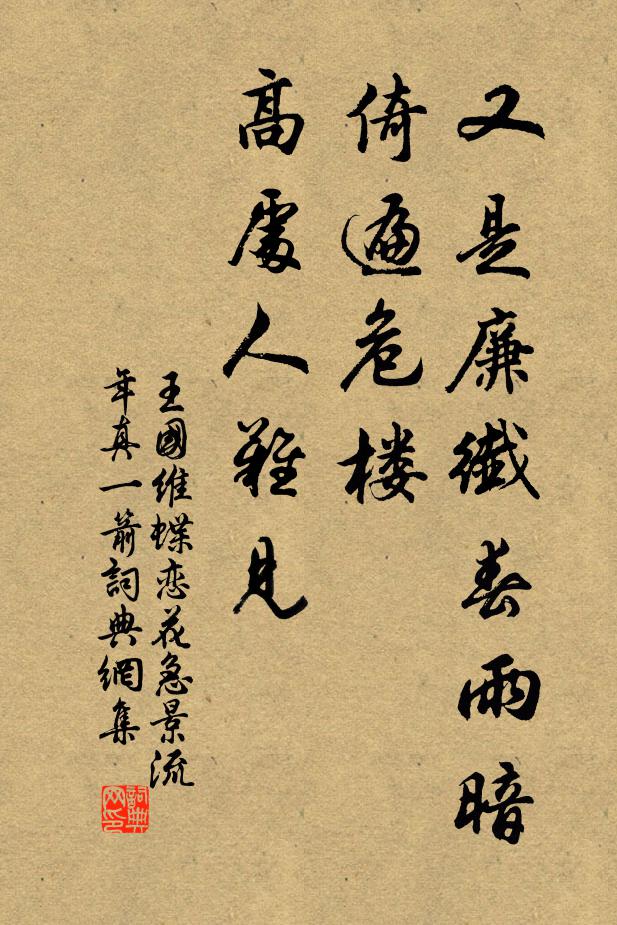 又是廉纖春雨暗
倚遍危楼
高處人難見
王國維蝶恋花急景流
年真一箭詞典網集
詞典网印